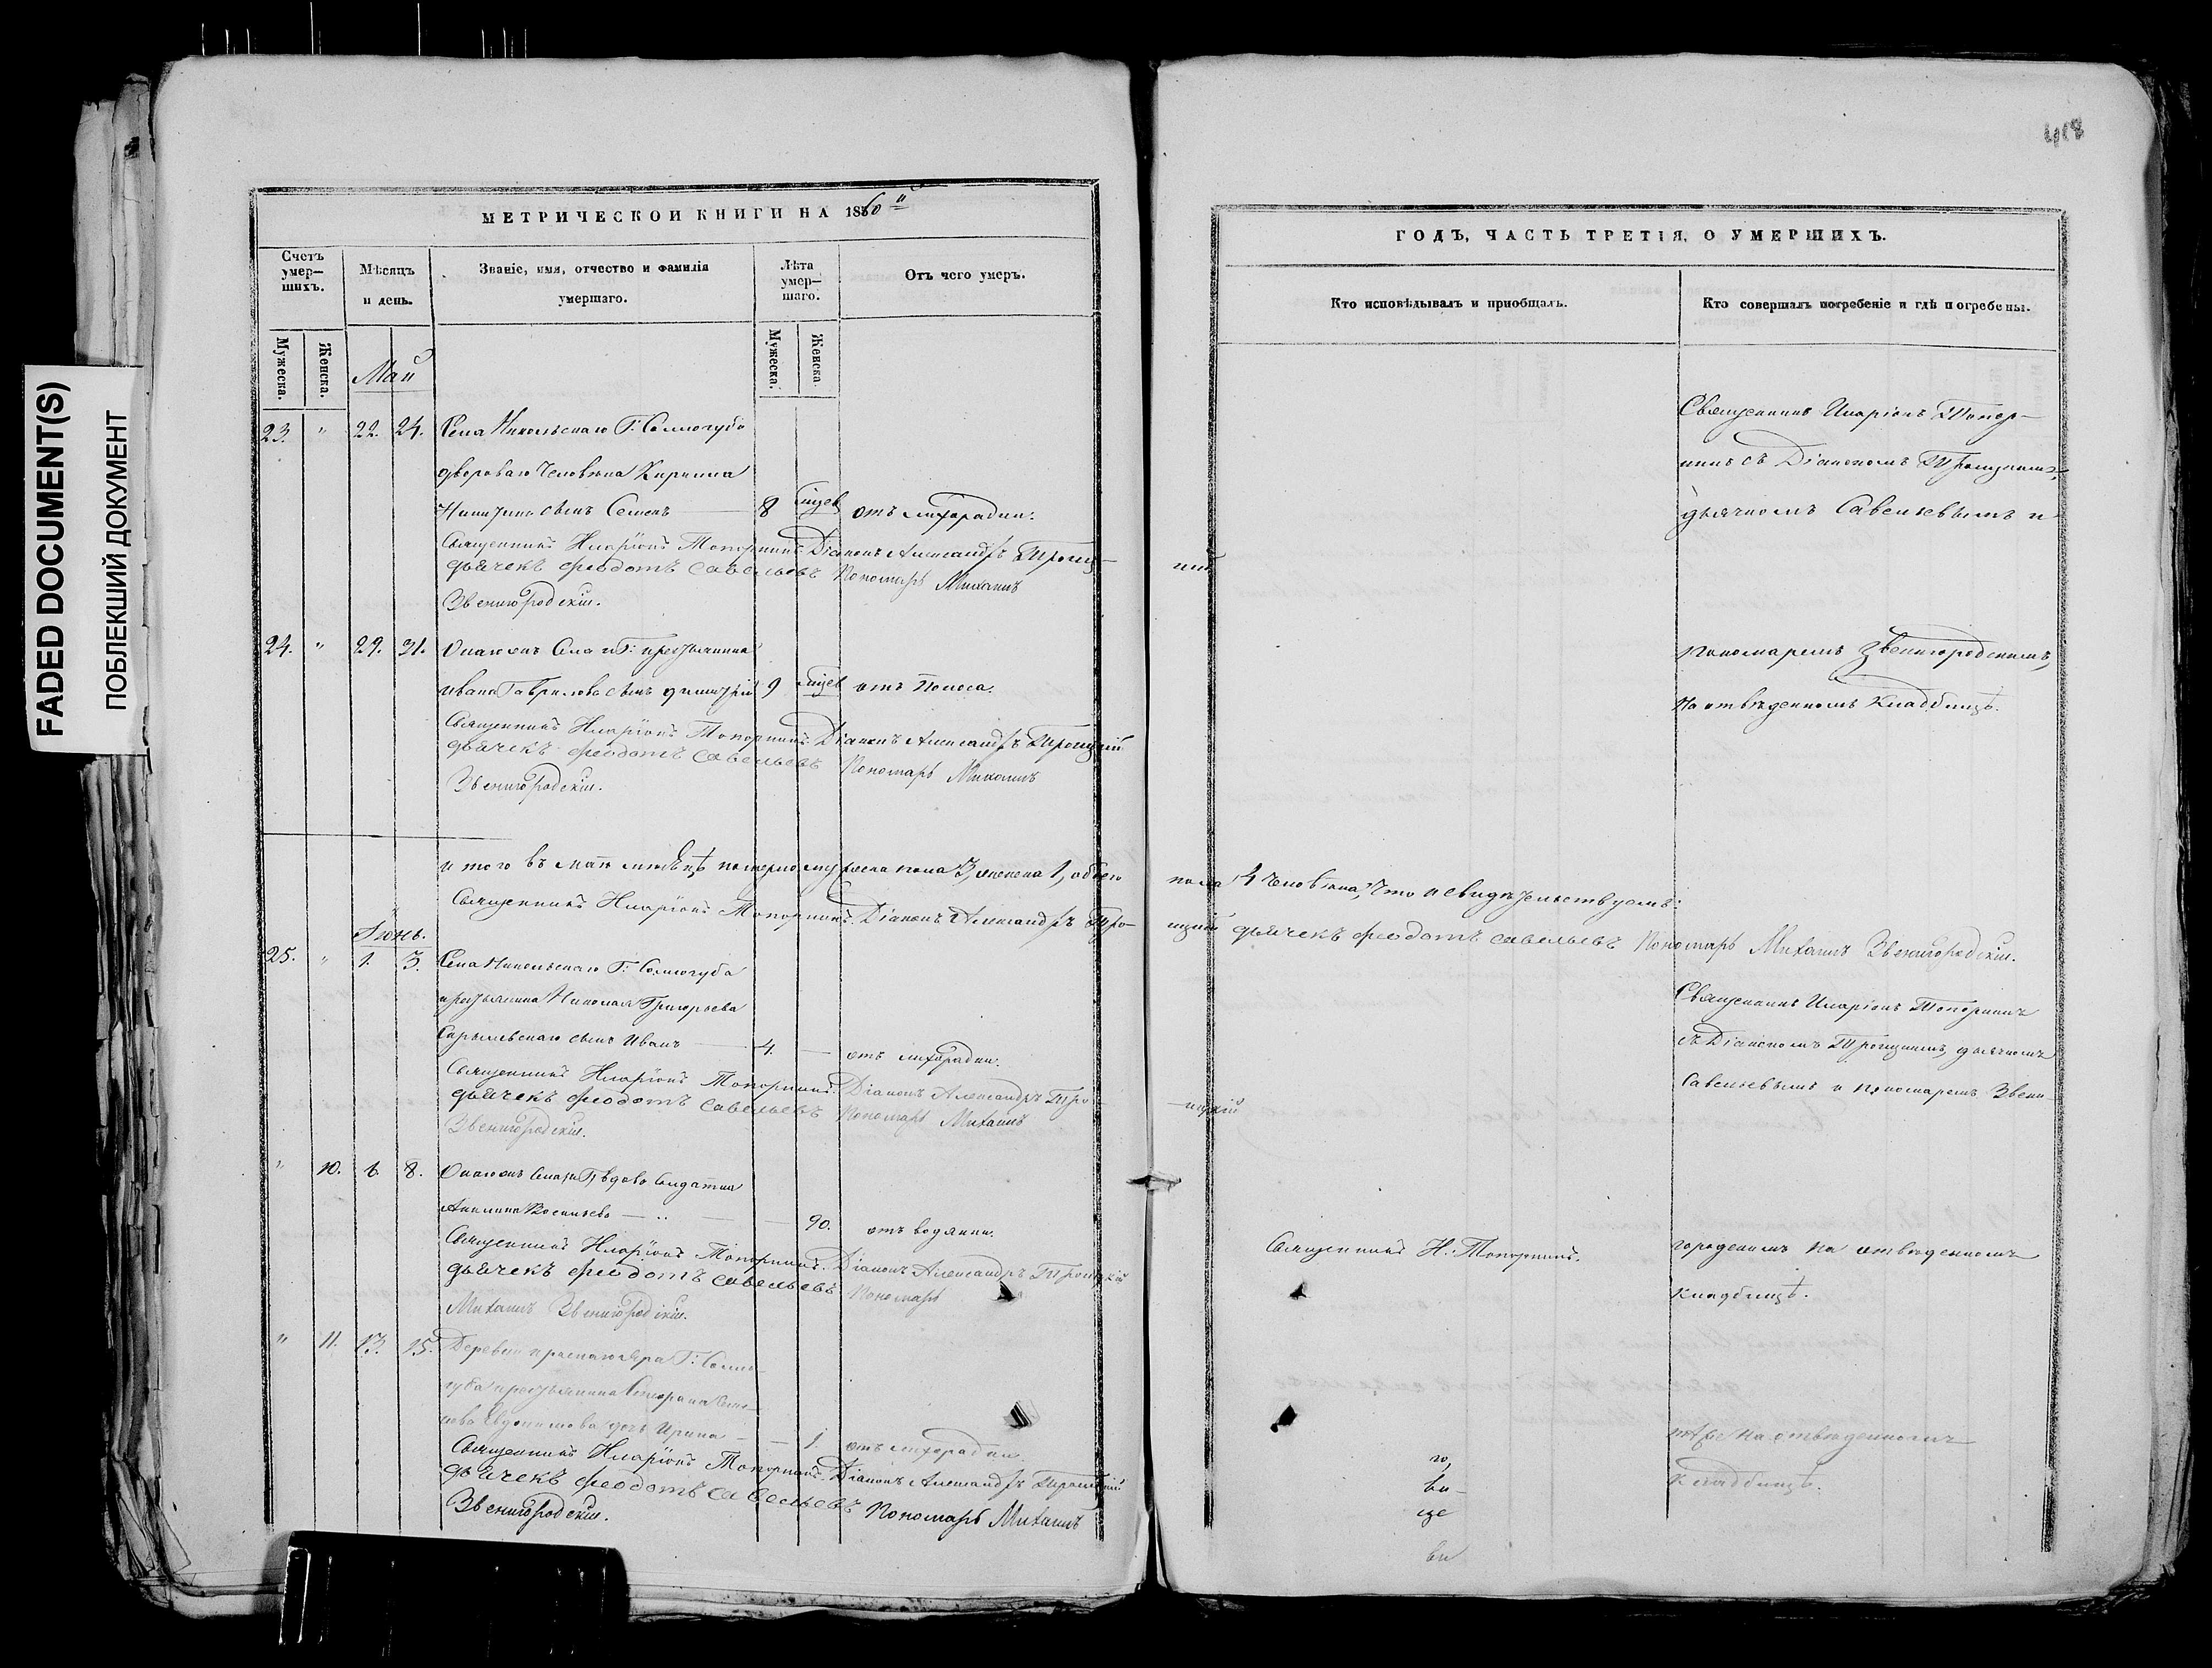 FADED DOCUMENT(S)
ПОБЛЕКШИЙ ДОКУМЕНТ
МЕТРИЧЕСКОЙ КНИГИ НА 1860й
Счетъ умер—шихъ.
Мѣсяцъ и день.
Званіе, имя, отчество и фамилія умершаго.
Лѣта умер—шаго.
Отъ чего умеръ.
Мужеска. Женска.
Мужеска. Женска.
Май
23. " 22. 24. Села Никольскаго Г: Соллогуба
двороваго человѣка Кирилла
Никитина сынъ Семенъ — 8 отъ лихорадки.
Священникъ Иларіонъ Топорнинъ Діаконъ Александръ Троиц—
дьячекъ Феодотъ Савельевъ Пономарь Михаилъ
Звенигородскій.
24. " 29. 31. Онаго же Села и Г: крестьянина
Ивана Гаврилова сынъ Димитрій 9 отъ поноса.
Священникъ Иларіонъ Топорнинъ Діаконъ Александръ Троицкій
дьячекъ Феодотъ Савельевъ Пономарь Михаилъ
Звенигородскій.
Итого въ маѣ мѣсяцѣ померло мужеска пола 3, женска 1, обоего
Священникъ Иларіонъ Топорнинъ. Діаконъ Александръ Тро—
Іюнь.
25. " 1. 3. Села Никольскаго Г: Соллогуба
крестьянина Николая Григорьева
сынъ Иванъ — 4. — отъ лихорадки.
Священникъ Иларіонъ Топорнинъ. Діаконъ Александръ Тро
дьячекъ Феодотъ Савельевъ Пономарь Михаилъ
Звенигородскій.
" 10. 6. 8. Онаго же Села и Г: вдова солдатка
Акилина Васильева — 90. отъ водянки.
Священникъ Иларіонъ Топорнинъ. Діаконъ Александръ Троицкій
дьячекъ Феодотъ Савельевъ Пономарь
Михаилъ Звенигородскій.
" 11. 13. 15. Деревни Краснаго Яра Г: Солло—
губа крестьянина
Евдокимова дочь Ирина — 1. отъ лихорадки
Священникъ Иларіонъ Топорнинъ. Діаконъ Александръ Троицкій
дьячекъ Феодотъ Савельевъ Пономарь Михаилъ
Звенигородскій.
418
ГОДЪ, ЧАСТЬ ТРЕТІЯ, О УМЕРШИХЪ.
Кто исповѣдывалъ и пріобщалъ.
Кто совершалъ погребеніе и гдѣ погребены.
Священникъ Иларіонъ Топор—
нинъ съ Діакономъ Троицкимъ,
дьячкомъ Савельевымъ и
кій
пономаремъ Звенигородскимъ,
на отвѣденномъ кладбищѣ.
пола 4 человѣка, что и свидѣтельствуемъ:
ицкій дьячекъ Феодотъ Савельевъ Пономарь Михаилъ Звенигородскій.
Священникъ Иларіонъ Топорнинъ
съ Діакономъ Троицкимъ, дьячкомъ
Савельевымъ и пономаремъ Звени—
—ицкій
Священникъ И: Топорнинъ.
городскимъ на отвѣденномъ
кладбищѣ.
на отвѣденномъ
кладбищѣ.